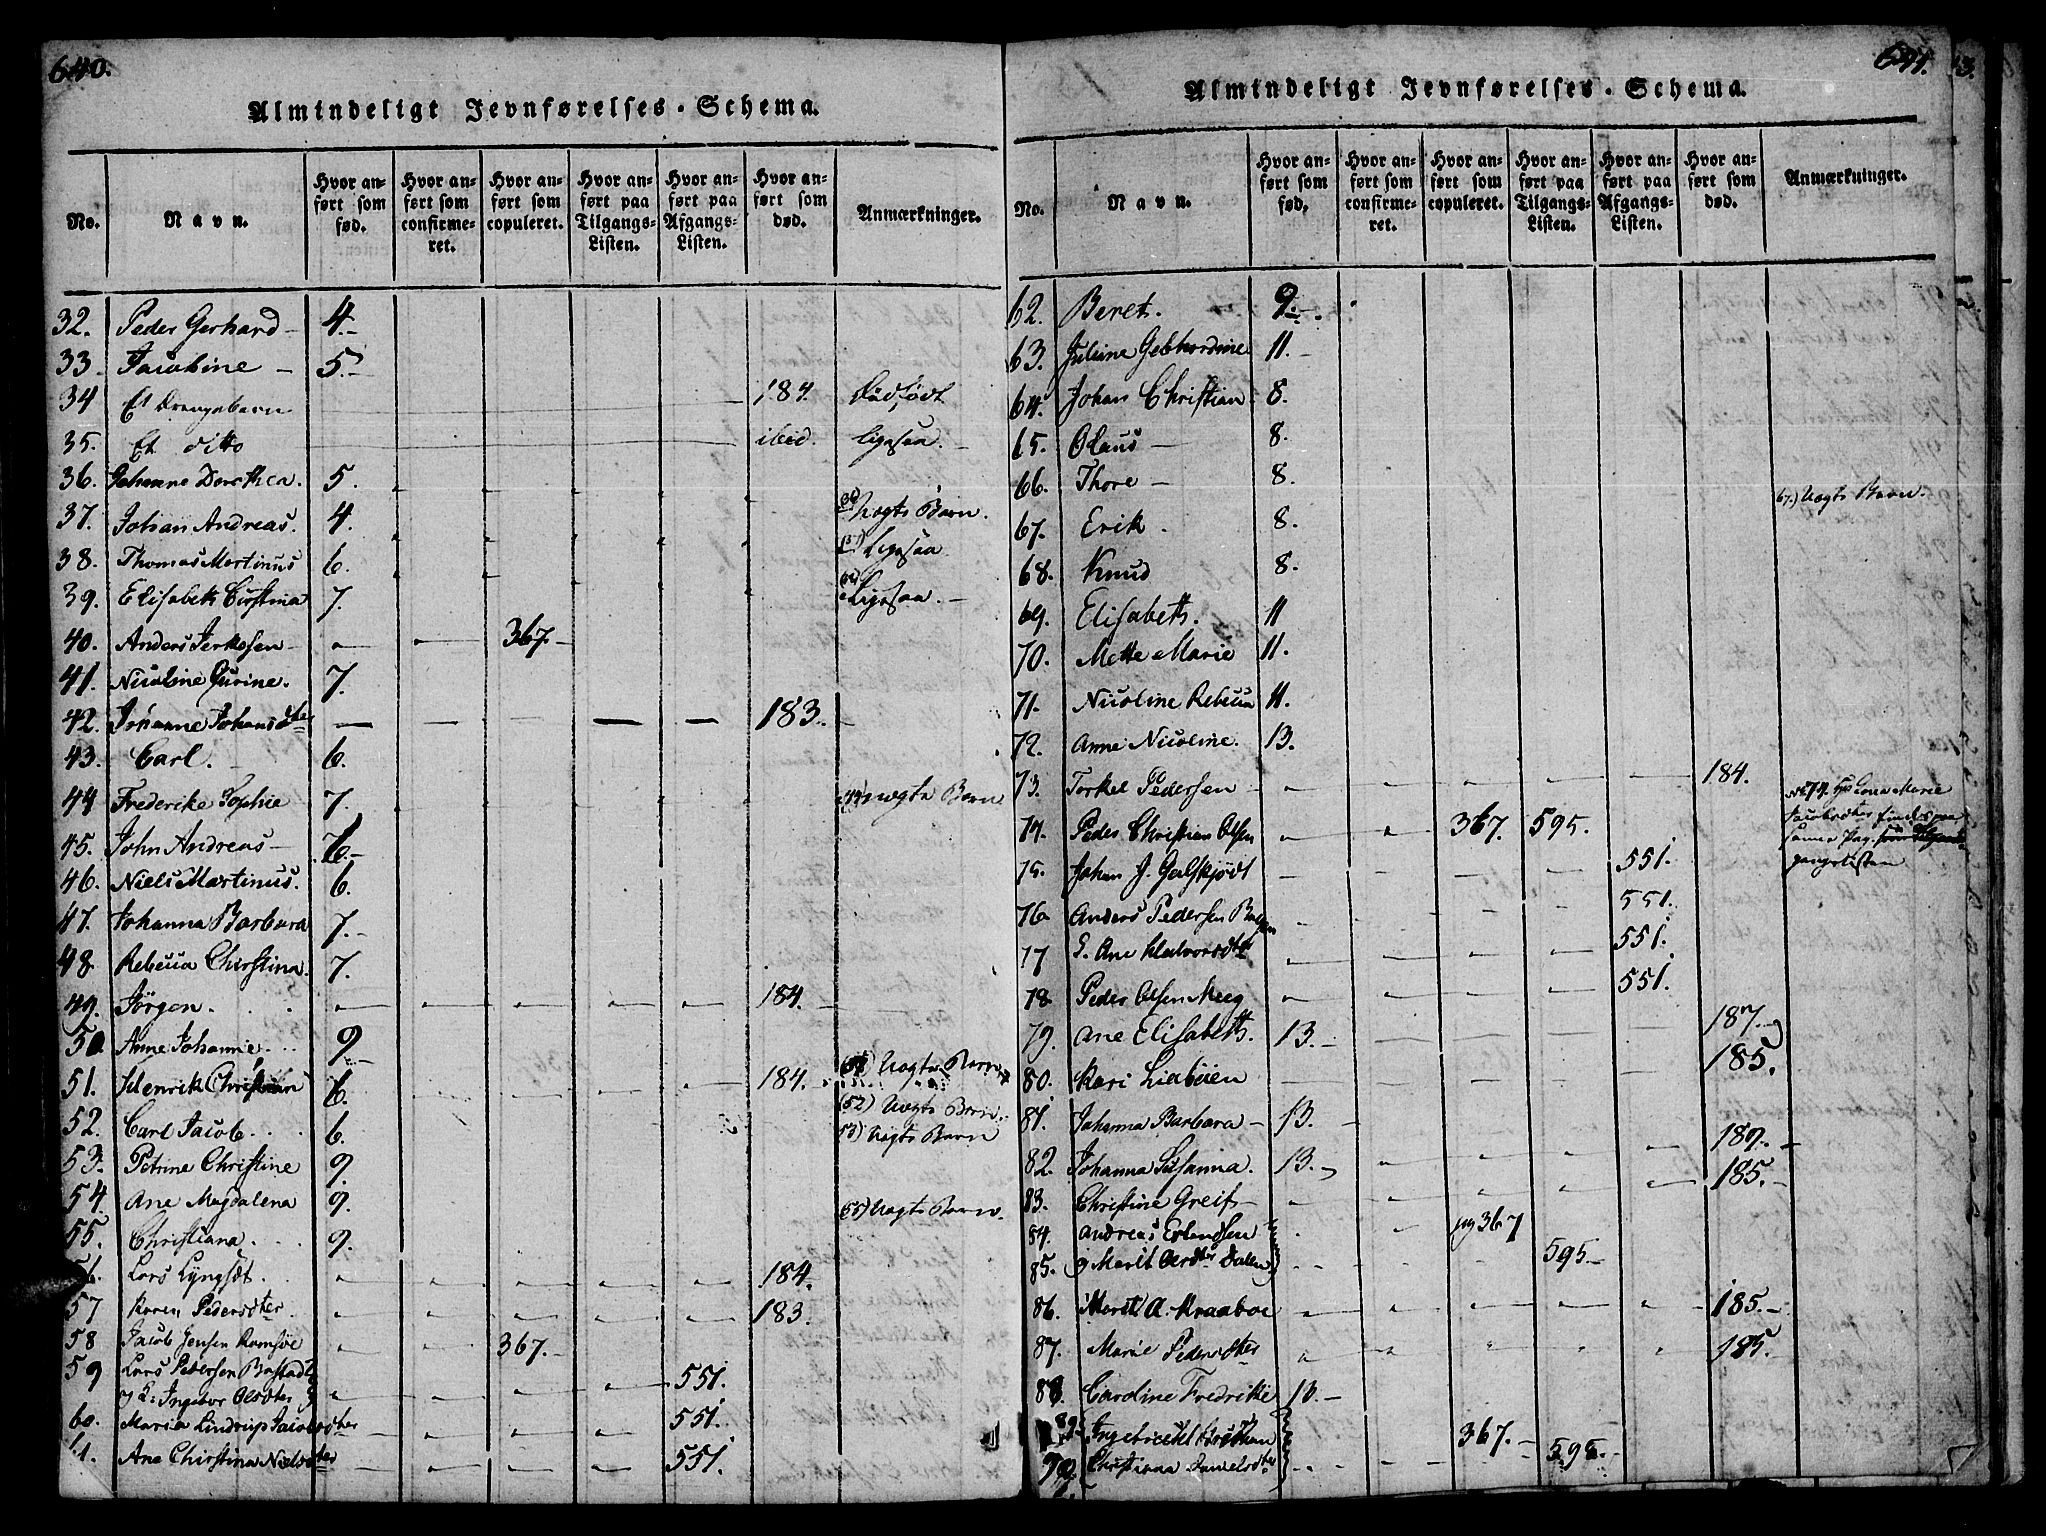 640.
Almindeligt Jevnførelses-Schema.
No. Navn. Hvor anført som fød. Hvor anført som confirmeret. Hvor anført som copuleret. Hvor anført paa Tilgangs-Listen. Hvor anført paa Afgangs-Listen. Hvor anført som død. Anmærkninger.
32. Peder Gerhard 4.
33. Jacobine 5.
34 Et Drengebarn 184. Dødfødt
35. Et ditto ibid. ligesaa.
36. Johanne Dorothea. 5.
37. Johan Andreas. 4. (36) Uægte Barn.
38. Thomas Martinus 6. (37) Ligesaa
39. Elisabeth Cirstina 7. Ligesaa.
40. Anders 367.
41. Nicoline Gurine. 7.
42. Johanne Johansdtter 183.
43. Carl. 6.
44 Frederike Sophie 7. (44) uægte Barn
45. John Andreas 6.
46. Niels Martinus. 6.
47. Johanna Barbara 7.
48. Rebecca Chirstina. 7.
49. Jörgen. 184.
50. Anne Johanne 9.
51. Henrik Christian 6. 184. Uægte Barn
52. Carl Jacob. 6. (52) Uægte Barn.
53. Petrine Christine 9. 53) Uægte Barn
54. Ane Magdalena 9.
55. Christiana. 9. (55) Uægte Barn.
56. Lars Lyngsæt. 184.
57 Karen Pedersdter 183.
58 Jacob Jensen Ramsöe 367.
59 Lars Pedersen Bastad
og K: Ingebor Olsdter 551.
60. Maria Lindrup Jacobsdter 551.
61. Ane Chirstina Nielsdter 551.
641.
Almindeligt Jevnførelses-Schema.
No. Navn. Hvor anført som fød. Hvor anført som confirmeret. Hvor anført som copuleret. Hvor anført paa Tilgangs-Listen. Hvor anført paa Afgangs-Listen. Hvor anført som død. Anmærkninger.
62. Beret. 9.
63. Juliine Gebhardine 11.
64. Johan Christian 8.
65. Olaus 8.
66. Thore 8.
67. Erik. 8. 67.) Uægte Barn.
68. Knud 8.
69. Elisabeth. 11
70. Mette Marie 11.
71. Nicoline Rebecca 11.
72. Anne Nicoline. 13.
73. Torkel Pedersen 184.
74. Peder Christian Olsen 367. 595.
75. Johan J. Galskjödt 551.
76. Anders Pedersen 551.
77 Ane Halvorsdtr 551.
78. Peder Olsen Meeg 551.
79. Ane Elisabeth. 13. 187.
80. Kari Liabøen 185.
81. Johanna Barbara 13.
82. Johanna Susanna. 13. 187.
83. Christine Greif 185.
84. Andreas Erlandsen pag 367
85. og Marit Olsdter Dalen 595.
86. Marit A. Kraaboe 185.
87. Marie Pedersdter 185.
88. Caroline Fredrike 10.
89. 367.
90. Christiana Danielsdter 595.